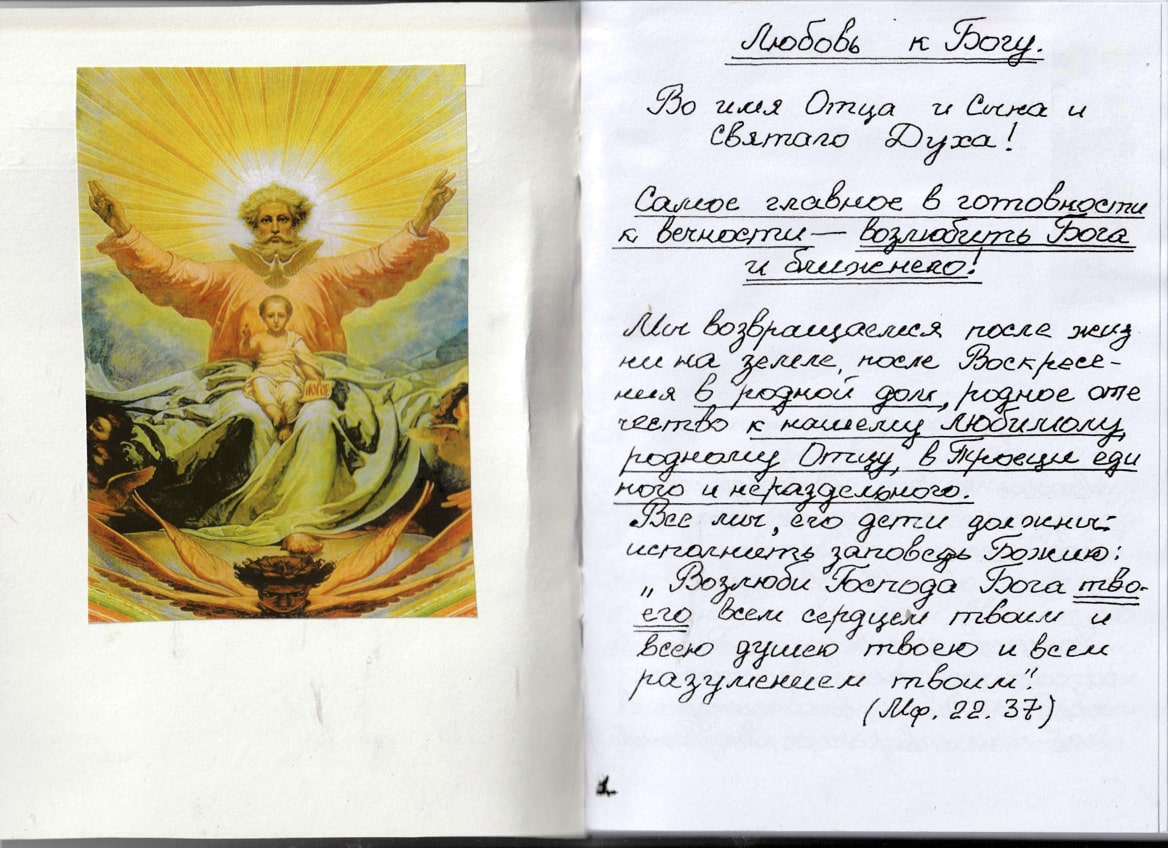 ЛОГОС
Любовь к Богу.
Во имя Отца и Сына и
Святаго Духа!
Самое главное в готовности
к вечности — возлюбить Бога
и ближнего!
Мы возвращаемся после жиз
ни на земле, после Воскресе-
ния в родной дом, родное оте
чество к нашему любимому,
родному Отцу, в Троеци еди
ного и нераздельного.
Все мы, его дети должны:
исполнить заповедь Божию:
„Возлюби Господа Бога тво-
его всем сердцем твоим и
всею душею твоею и всем
разумением твоим".
(Мф. 22. 37)
1